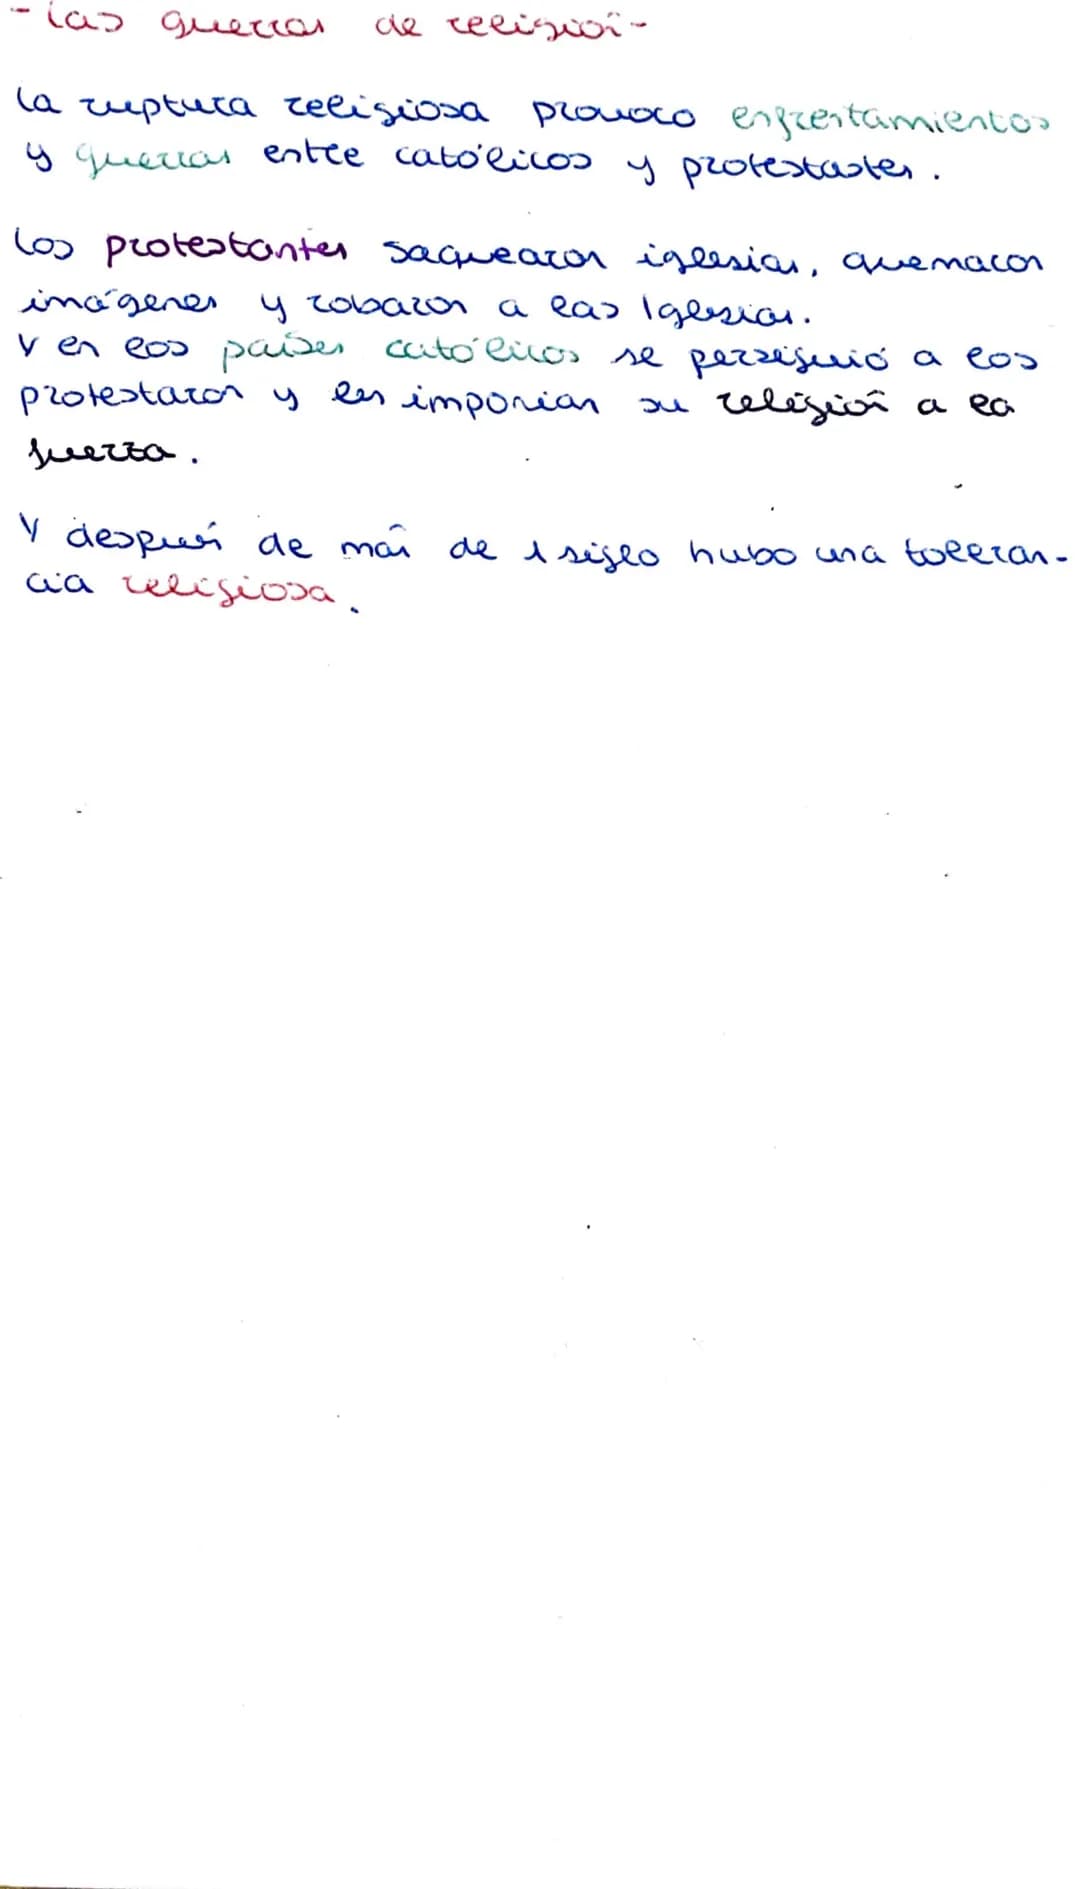 - Las guerras de religión -
La ruptura religiosa provoco enfrentamientos
y guerras entre católicos y protestantes.
Los protestantes saquearon iglesias, quemaron
imágenes y robaron a las Iglesias.
Y en los países católicos se persiguió a los
protestaron y les imponían su religión a la
fuerza.
Y después de más de 1 siglo hubo una toleran-
cia religiosa.